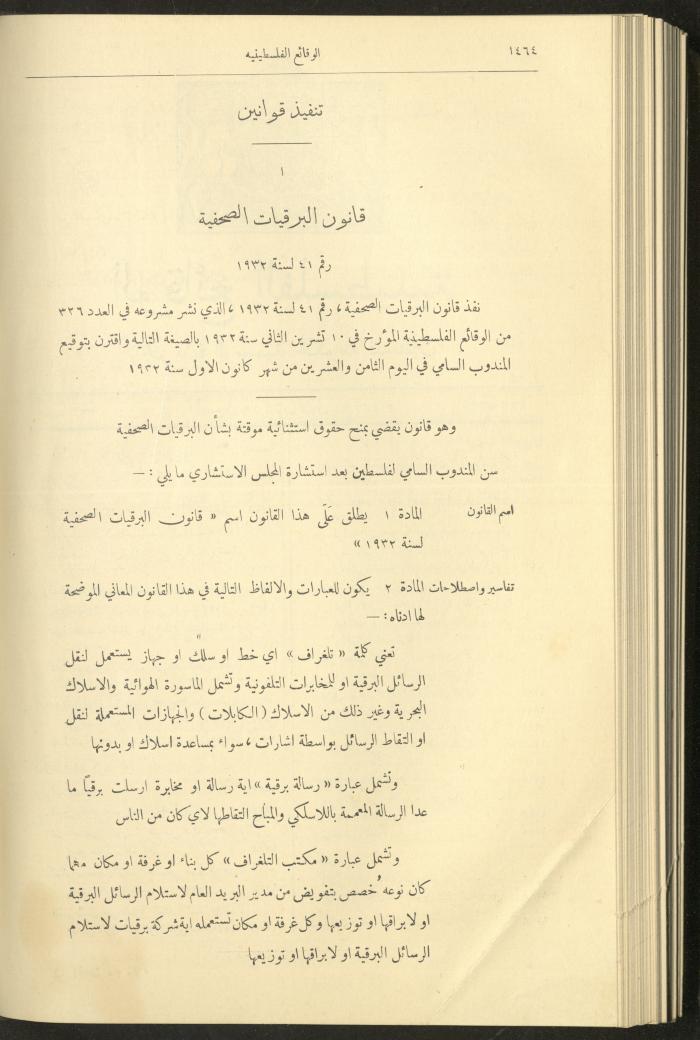 ١٤٦٤
الوقائع الفلسطينيه
تنفيذ قوانين
١
قانون البرقيات الصحفية
رقم ٤١ لسنة ١٩٣٢
نفذ قانون البرقيات الصحفية ، رقم ٤١ لسنة ١٩٣٢ ، الذي نشر مشروعه في العدد ٣٢٦
من الوقائع الفلسطينية المؤرخ في ١٠ تشرين الثاني سنة ١٩٣٢ بالصيغة التالية واقترن بتوقيع
المندوب السامي في اليوم الثامن والعشرين من شهر كانون الاول سنة ١٩٣٢
وهو قانون يقضي بمنح حقوق استثنائية موقتة بشأن البرقيات الصحفية
سن المندوب السامي لفلسطين بعد استشارة المجلس الاستشاري ما يلي : —
اسم القانون
المادة ١ يطلق عَلَى هذا القانون اسم « قانون البرقيات الصحفية
لسنة ١٩٣٢ »
تفاسير واصطلاحات
المادة ٢ يكون للعبارات والالفاظ التالية في هذا القانون المعاني الموضحة
لها ادناه : —
تعني كلمة « تلغراف » اي خط او سلك او جهاز يستعمل لنقل
الرسائل البرقية او للمخابرات التلفونية وتشمل الماسورة الهوائية والاسلاك
البحرية وغير ذلك من الاسلاك ( الكابلات ) والجهازات المستعملة لنقل
او التقاط الرسائل بواسطة اشارات ، سواء بمساعدة اسلاك او بدونها
وتشمل عبارة « رسالة برقية » اية رسالة او مخابرة ارسلت برقيًا ما
عدا الرسالة المعممة باللاسلكي والمباح التقاطها لاي كان من الناس
وتشمل عبارة « مكتب التلغراف » كل بناء او غرفة او مكان مهما
كان نوعه خُصص بتفويض من مدير البريد العام لاستلام الرسائل البرقية
او لابراقها او توزيعها وكل غرفة او مكان تستعمله اية شركة برقيات لاستلام
الرسائل البرقية او لابراقها او توزيعها